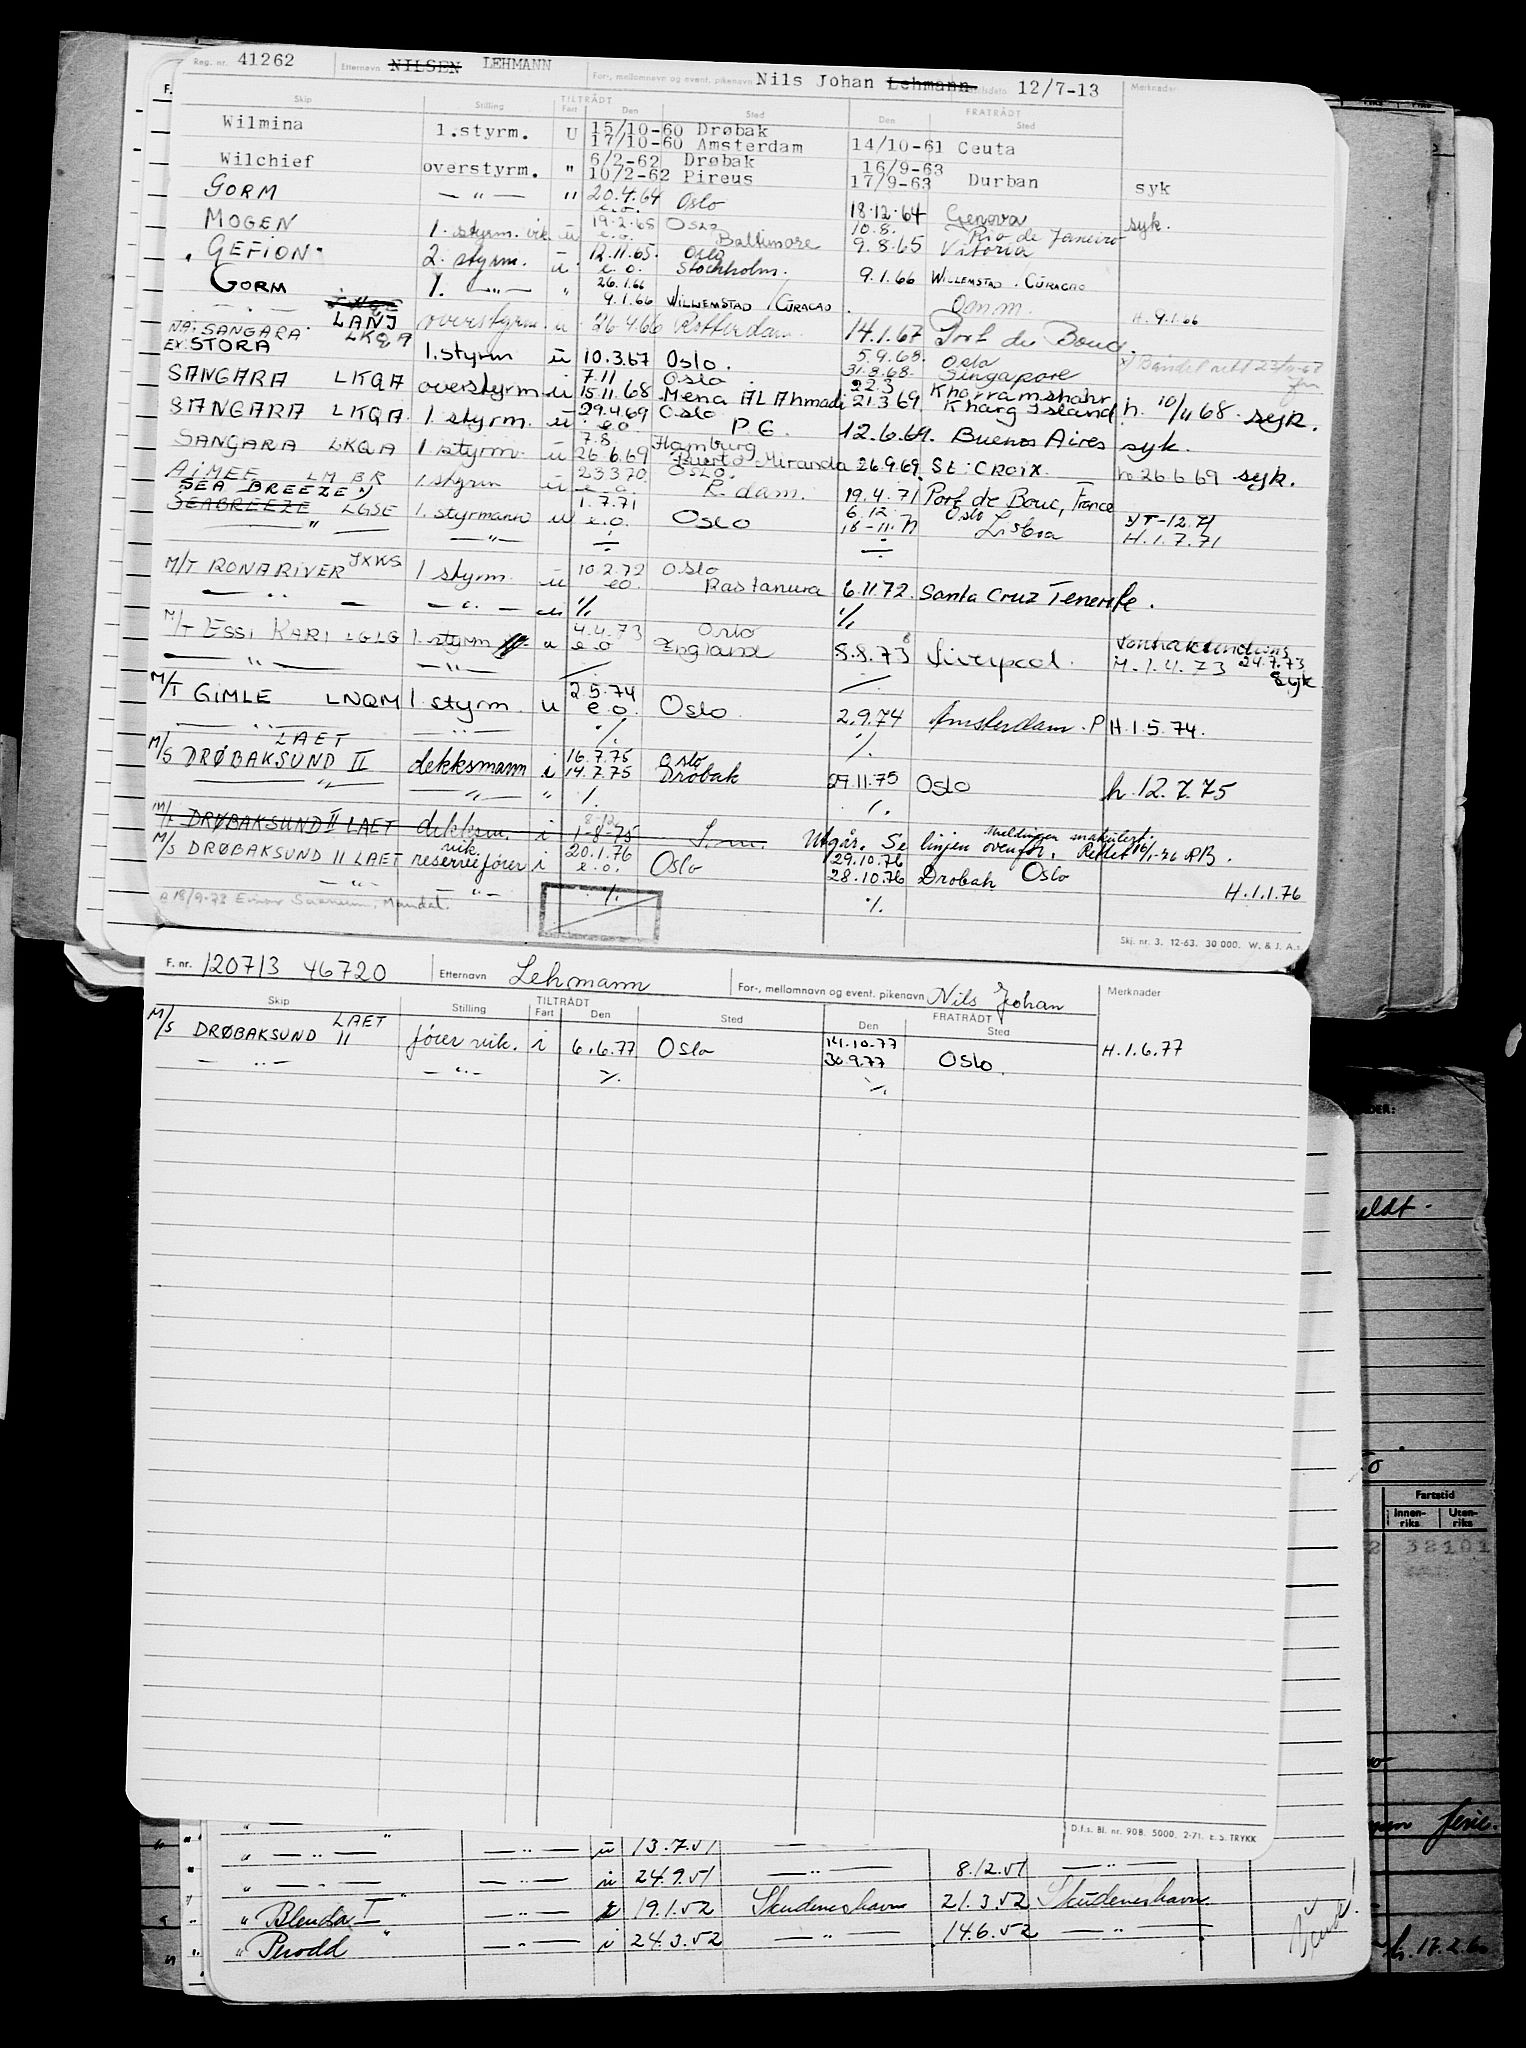 Reg. nr. 41262 Etternavn NILSEN LEHMANN For-, mellomnavn og event. pikenavn Nils Johan Lehmann 12/7-13 Merknader
Skip Stilling TILTRÅDT Fart Den Sted FRATRÅDT Den Sted
Wilmina 1.styrm. U 15/10-60 Drøbak
17/10-60 Amsterdam 14/10-61 Ceuta
Wilchief overstyrm. " 6/2-62 Drøbak 16/9-63
10/2-62 Pireus 17/9-63 Durban syk
GORM — " — " 20.4.64 Oslo 18.12.64 Genova syk.
e.o.
MOGEN 1. styrm. vik. u 19.2.65 Oslo 10.8. Rio de Janeiro
e.o. Baltimore 9.8.65 Vitoria
GEFION 2. styrm. u 12.11.65. Oslo
e.o. Stockholm. 9.1.66 WILLEMSTAD . CURACAO
GORM 1. — " — " 26.1.66
9.1.66 WILLEMSTAD / CURACAO . Omm. H. 9.1.66
LANJ overstyrm. u 26.4.66 Rotterdam 14.1.67 Port de Bouc
NÅ: SANGARA LKQA
EX: STORA 1. styrm u 10.3.67 Oslo. 5.9.68. Oslo
31.8.68. Singapore
SANGARA LKQA overstyrm u 7.11 Oslo 22.3 Khorramshahr
15.11.68 Mena Al Ahmadi 21.3.69 Kharg Island h. 10/11 68. syk.
SANGARA LKQA. 1. styrm. u 29.4.69 Oslo
e.o P.G. 12.6.69. Buenos Aires syk.
SANGARA LKQA 1 styrm. u 7.8. Hamburg
26.6.69 Puerto Miranda 26.9.69. St: CROIX. h 26 6 69 syk.
AIMEE LMBR 1. styrm u 23.3.70. OSLO.
e.o. R.dam. 19.4.71 Port de Bouc, France
SEA BREEZE
SEABREEZE LGSE 1. styrmann u 1.7.71
e.o. Oslo 6.12. Oslo
18-11-71 Lisboa T-12.71
H. 1.7.71
— " — — " — ÷ ÷
M/T RONARIVER JXWS 1 styrm. u 10.2.72 Oslo
eo. Rastanura 6.11.72. Santa Cruz Tenerife.
— " — — " — u % %
M/T ESSI KARI LGLG 1. styrm u 4.4.73 Oslo
e o England 8.8.73 Liverpool. H. 1.4.73 24.7.73
syk
— " — — " —
M/T GIMLE LNQM 1. styrm. u 2.5.74
e.o. Oslo 2.9.74 Amsterdam. P H. 1.5.74.
— " — — " — % %
M/S DRØBAKSUND II LAET dekksmann i 16.7.75 Oslo
14.7.75 Drøbak 27.11.75 Oslo h. 12.7.75
— " — — " — " % %
M/F DRØBAKSUND II LAET dekksm. i 8-12
1-8-75 Utgår. Se linjen ovenfor. Meldingen makulert. Rettet 16/1-76 RB.
M/S DRØBAKSUND II LAET vik. reserve fører i 20.1.76
e.o. Oslo 29.10.76
28.10.76 Drobak Oslo H. 1.1.76
— " — — " — % %
Skj. nr. 3. 12-63. 30 000. W. & J. A.s.
F. nr. 120713 46720 Etternavn Lehmann For-, mellomnavn og event. pikenavn Nils Johan Merknader
Skip Stilling TILTRÅDT Fart Den Sted FRATRÅDT Den Sted
M/S DRØBAKSUND II LAET fører vik. i 6.6.77 Oslo 14.10.77
30.9.77 Oslo. H. 1.6.77
— " — — " — % %
D.f.s. Bl. nr. 908. 5000. 2-71. E.S. TRYKK
Fartstid
Innen-riks Uten-riks
32101
" — " — u 13.7.51
" — " — — " — u 24.9.51 — " — 8.12.51 — " —
" Blenda I " — " — 19.1.52 Skudeneshavn 21.3.52 Skudeneshavn
" Perodd " — " — i 24.3.52 — " — 14.6.52 — " —